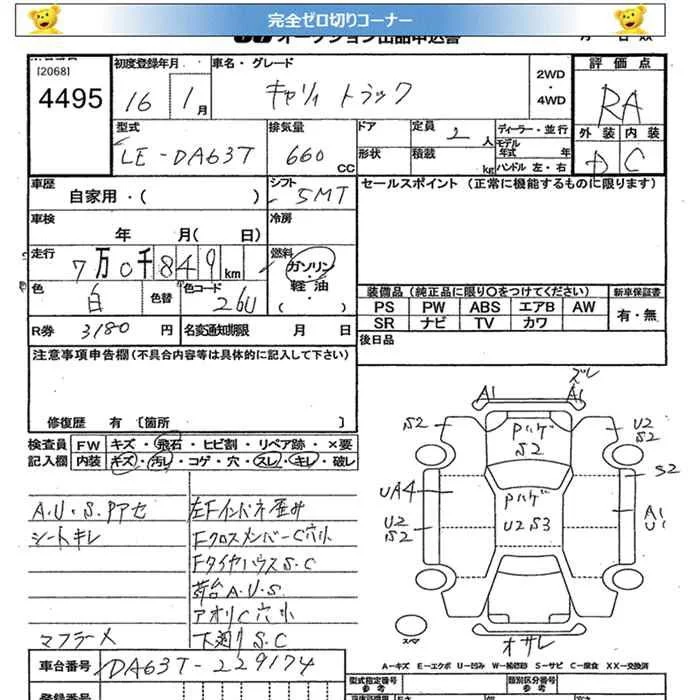 完全ゼロ切りコーナー
オークション出品申込書
[2068]
4495
初度登録年月
16 1月
車名・グレード
キャリィ トラック
2WD
・
4WD
評価点
RA
外装 内装
D C
型式
LE-DA63T
排気量
660 CC
ドア
定員 2人
形状
積載 kg
ディーラー・並行
モデル年式 年
ハンドル 左・右
車歴
自家用・( )
シフト
5MT
セールスポイント (正常に機能するものに限ります)
車検
年 月( 日)
冷房
走行
7万0千849km
燃料
ガソリン
・
軽油
・
( )
色
白
色替
色コード
26U
装備品 (純正品に限り○をつけてください)
新車保証書
PS PW ABS エアB AW
SR ナビ TV カワ
有・無
R券 3180円
名変通知期限 月 日
後日品
注意事項申告欄 (不具合内容等は具体的に記入して下さい)
修復歴 有 [箇所 ]
検査員 FW キズ・飛石・ヒビ割・リペア跡・×要
記入欄 内装 キズ・汚レ・コゲ・穴・スレ・キレ・破レ
A.U.S.Pアセ
シートキレ
マフラーメ
左Fインパネ歪み
Fクロスメンバー C穴小
FタイヤハウスS.C
荷台A.U.S
アオリC穴小
下廻りS.C
ズレ
A1 A1
S2
Pハゲ
S2
U2
S2
S2
UA4
Pハゲ
U2S3
A1
U1
U2
S2
スペア
オサレ
A-キズ E-エクボ U-凹み W-補修跡 S-サビ C-腐食 XX-交換済
車台番号 DA63T-229174
型式指定番号
参考
類別区分番号
参考
登録番号